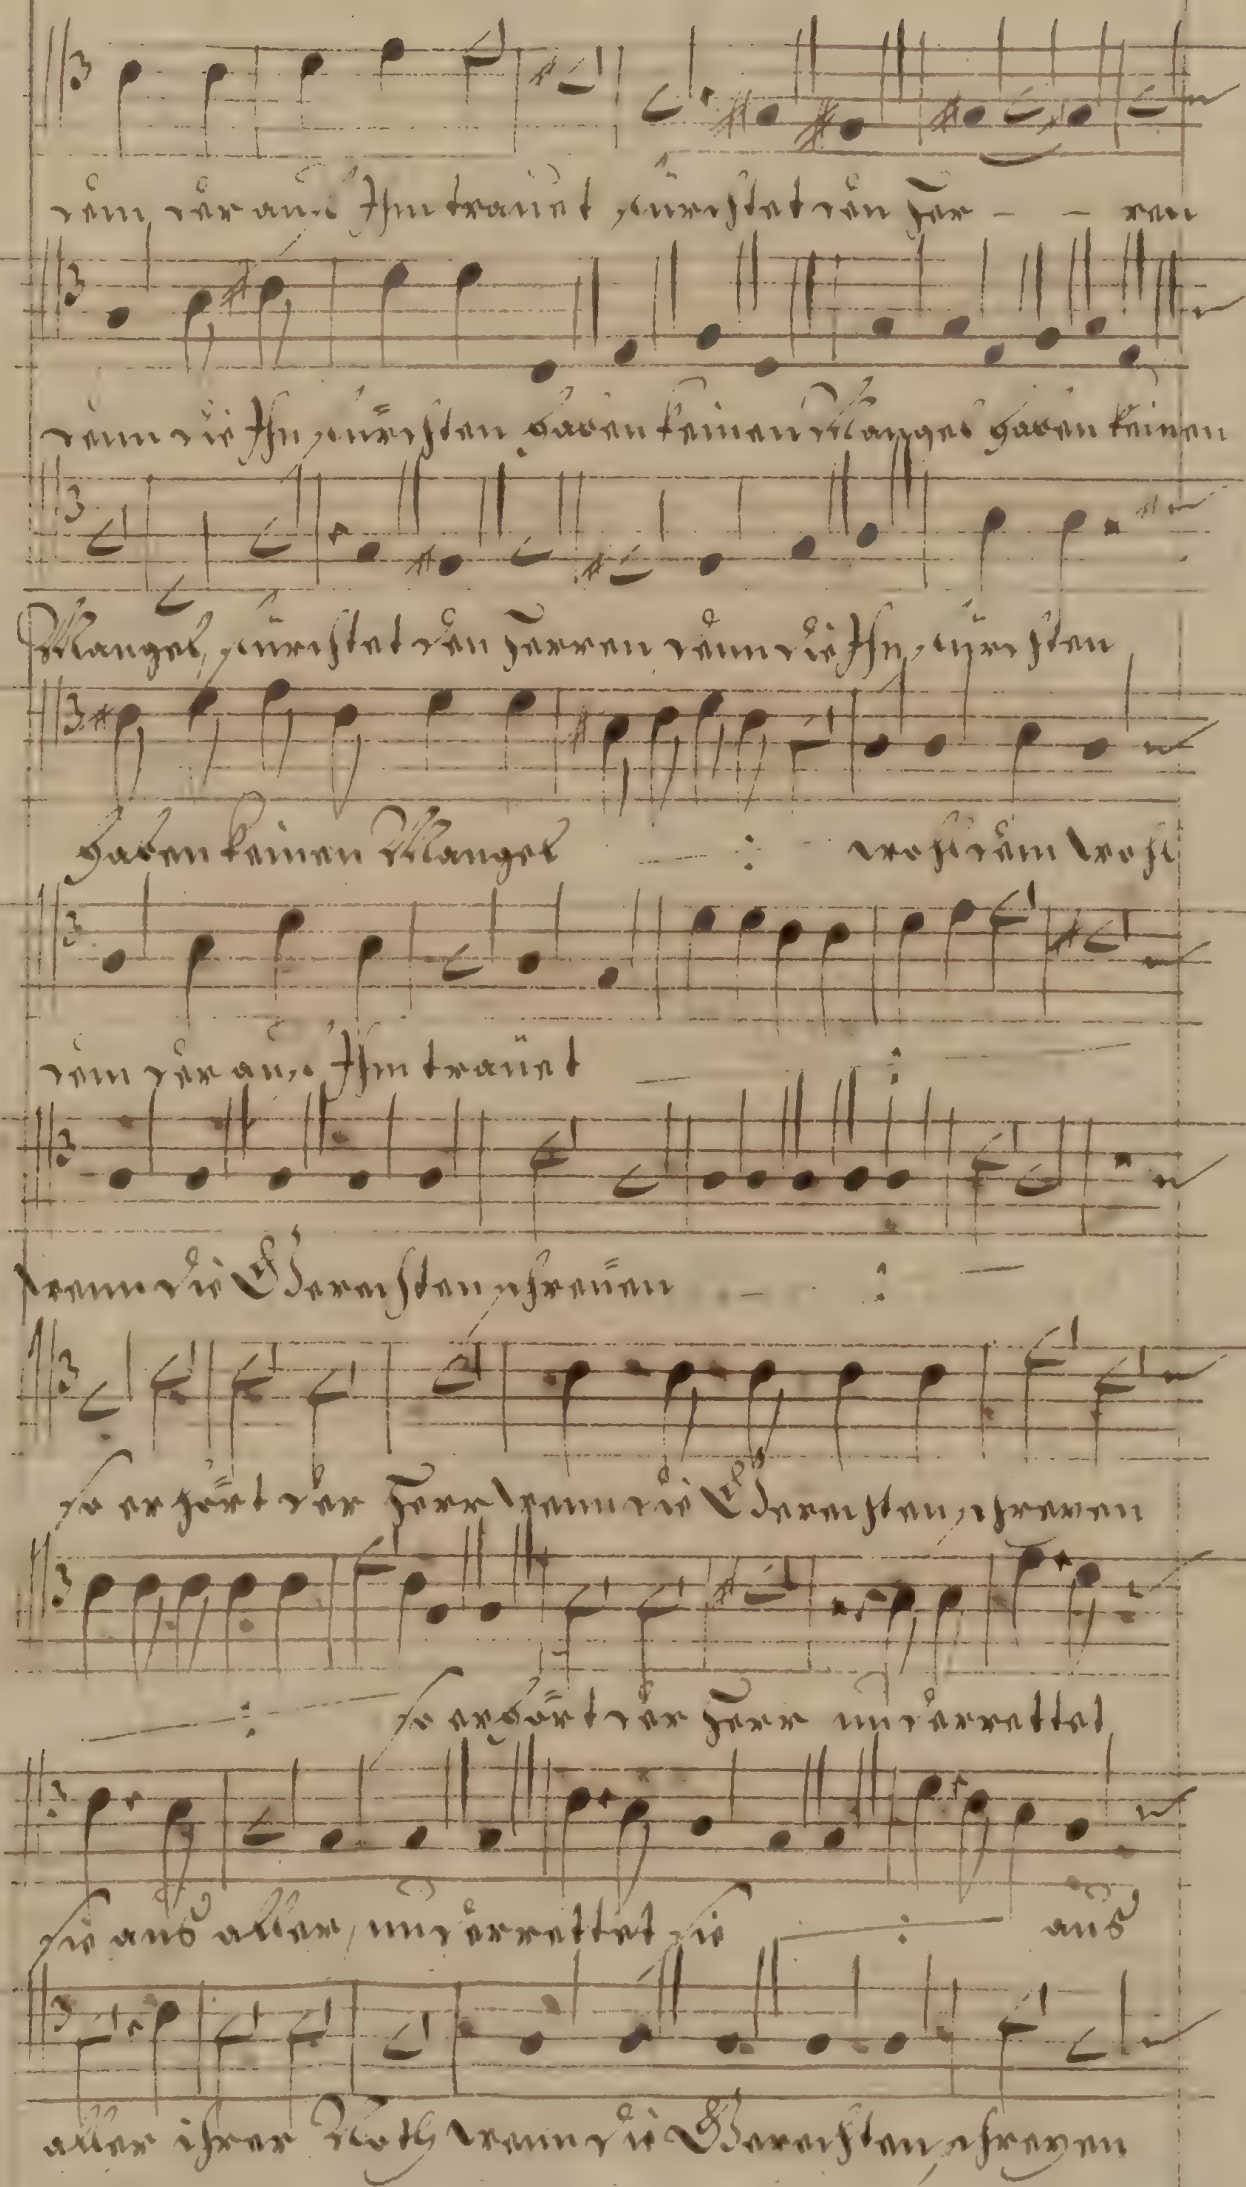 dem, der auf Ihm trauet fürchtet den Her - - ren
denn die Ihn fürchten haben keinen Mangel haben keinen
Mangel, fürchtet den Herren denn die Ihn fürchten
haben keinen Mangel — : wohl dem wohl
dem der auf Ihm trauet — : —
wenn die Gerechten schreuen — : —
so erhört der Herr wenn die Gerechten schreyen
— : — so erhört der Herr und errettet
sie aus aller, und errettet sie — : — aus
aller ihrer Noth wenn die Gerechten schreyen